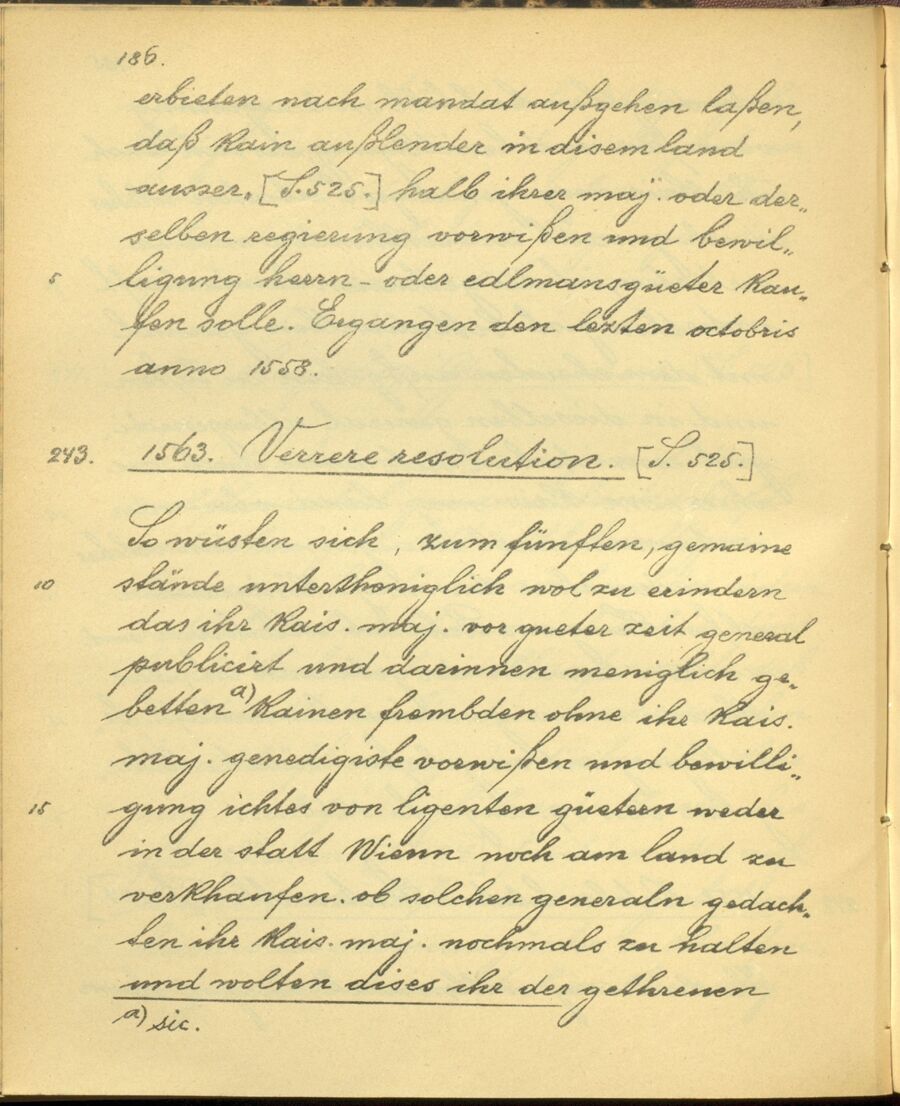 186.
erbieten nach mandat außgehen laßen,
daß kain außlender in disem land
ausser„ [S. 525.] halb ihrer maj. oder der„
selben regierung vorwißen und bewil„
5 ligung herrn- oder edlmansgüeter kau„
fen solle. Ergangen den lezten octobris
anno 1558.
243. 1563. Verrere resolution. [S. 525.]
So wüsten sich, zum fünften, gemaine
10 stände untertheniglich wol zu erindern
das ihr kais. maj. vor gueter zeit general
publicirt und darinnen meniglich ge„
betten a) kainen frembden ohne ihr kais.
maj. genedigiste vorwißen und bewilli„
15 gung ichtes von ligenten güetern weder
in der statt Wienn noch am land zu
verkhaufen. ob solchen generaln gedach„
ten ihr kais. maj. nochmals zu halten
und wolten dises ihr der gethreuen
a) sic.